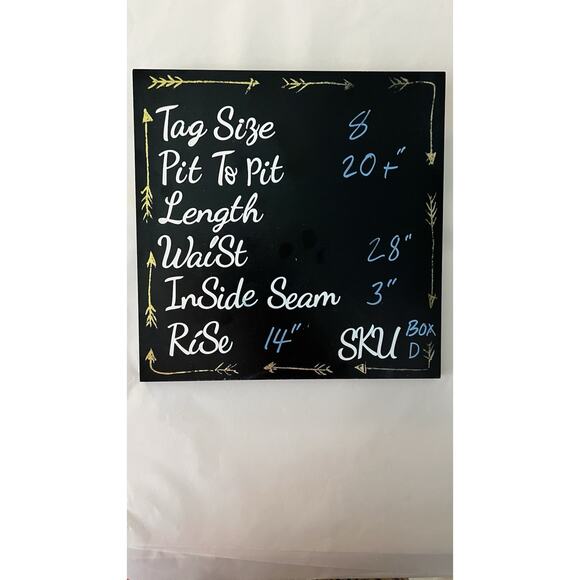 Tag Size 8
Pit To Pit 20+"
Length
WaiSt 28"
InSide Seam 3"
RiSe 14" SKU Box D